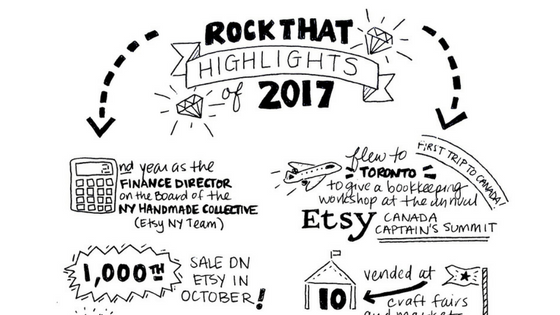 ROCK THAT
HIGHLIGHTS
of 2017
2nd year as the
FINANCE DIRECTOR
on the Board of the
NY HANDMADE COLLECTIVE
(Etsy NY Team)
flew to
TORONTO
to give a bookkeeping
workshop at the annual
Etsy CANADA
CAPTAIN'S SUMMIT
FIRST TRIP TO CANADA!
1,000TH
SALE ON
ETSY IN
OCTOBER!
10
vended at
craft fairs
and market